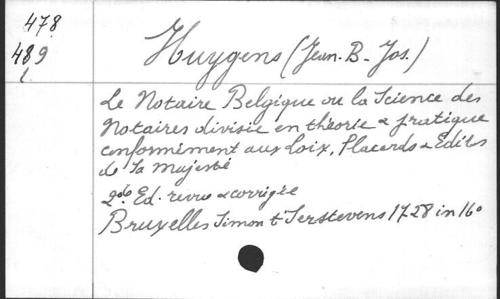 478
489
1
Huygens (Jean-B-Jos.)
Le Notaire Belgique ou la Science des
Notaires divisie en théorie & pratique
conformément aux loix, Placards & Edits
de Sa Majesté
2de Ed. revue & corrigée
Bruxelles Simon t'Serstevens 1728 in 16°